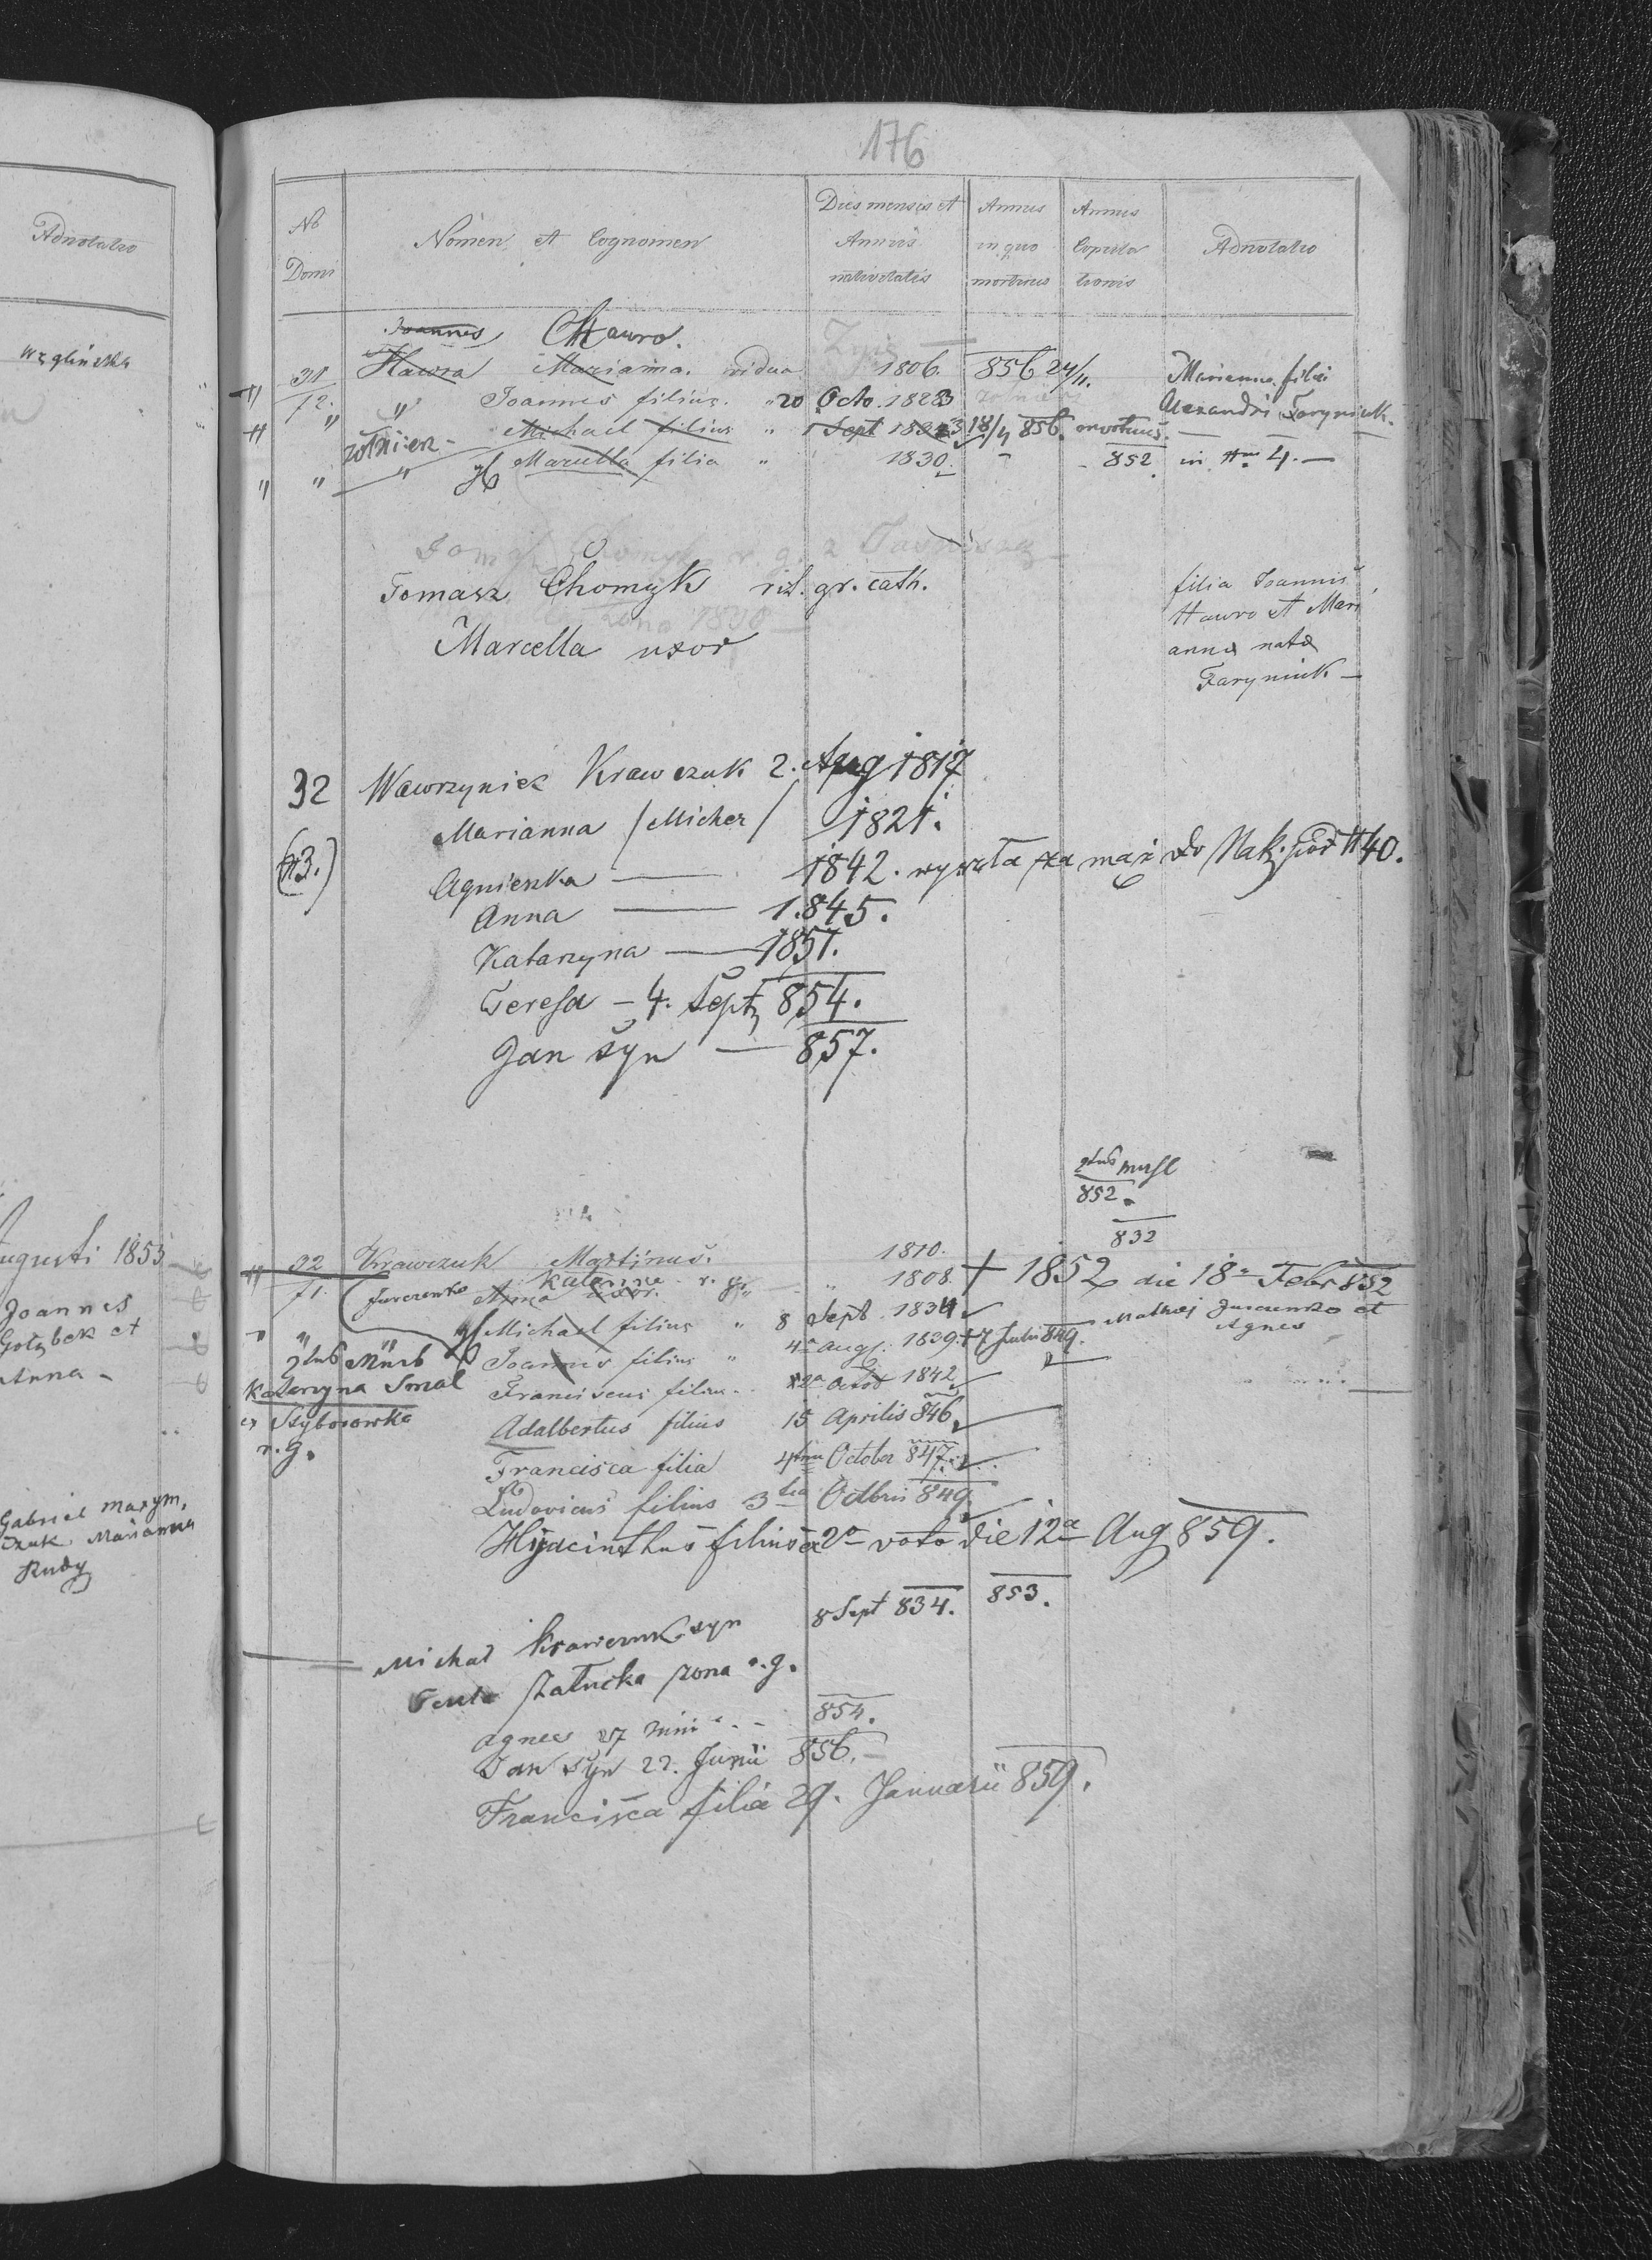 176
Adnotatio
No Domi
Nomen et Cognomen
Dies mensis et Annus nativitatis
Annus in quo mortuus
Annus Copulationis
Adnotatio
Joannes Hawro.
31 Hawra Marianna vidua 1806. 856 24/11. Marianna filia
72. " Joannes filius " 20 Octo. 1823 Alexandri Faryniuk.
" Michael filius " 1 Sept 18/4 856.
żołnierz - " Marcella filia " 1830 - 852. in No 4. —
Tomasz Chomyk rit. gr. cath.
Marcella uxor
filia Joannis
Hawro et Mari
anna nata
Faryniuk —
32 Wawrzyniec Krawczuk 2. Aug 1817
Marianna / Micher / 1821.
(73.)
Agnieszka — 1842. wyszła za mąż do Nak. pod N 40.
Anna — 1845.
Katarzyna — 1851.
Teressa – 4. Sept 854.
Jan syn — 857.
852.
832
32 Krawczuk Martinus. 1810.
71. Anna uxor. Katarina r. gr. " 1808. + 1852 die 18a Febr 852
" " " Michael filius " 8 Sept. 1834
Mathej et
Agnes
Joannes filius " 4a Aug. 1839. + 7 Julii 849.
Katarzyna Smal
Franciscus filius 1842
ex Szyborowka
r. g.
Adalbertus filius 15 Aprilis 846
Francisca filia October 847
Ludovicus filius 3tia Octbris 849
Hyacinthus filius ex 2o voto die 12a Aug 859.
Michał Krawczuk syn 8 Sept 834. 853.
Załucka żona r. g.
Agnes 27 854.
Jan syn 22. Junii 856. —
Francisca filia 29. Januarii 859.
Augusti 1855
Joannes
Gołąbek et
Anna -
Gabriel Maxym,
czuk Marianna
Rudy